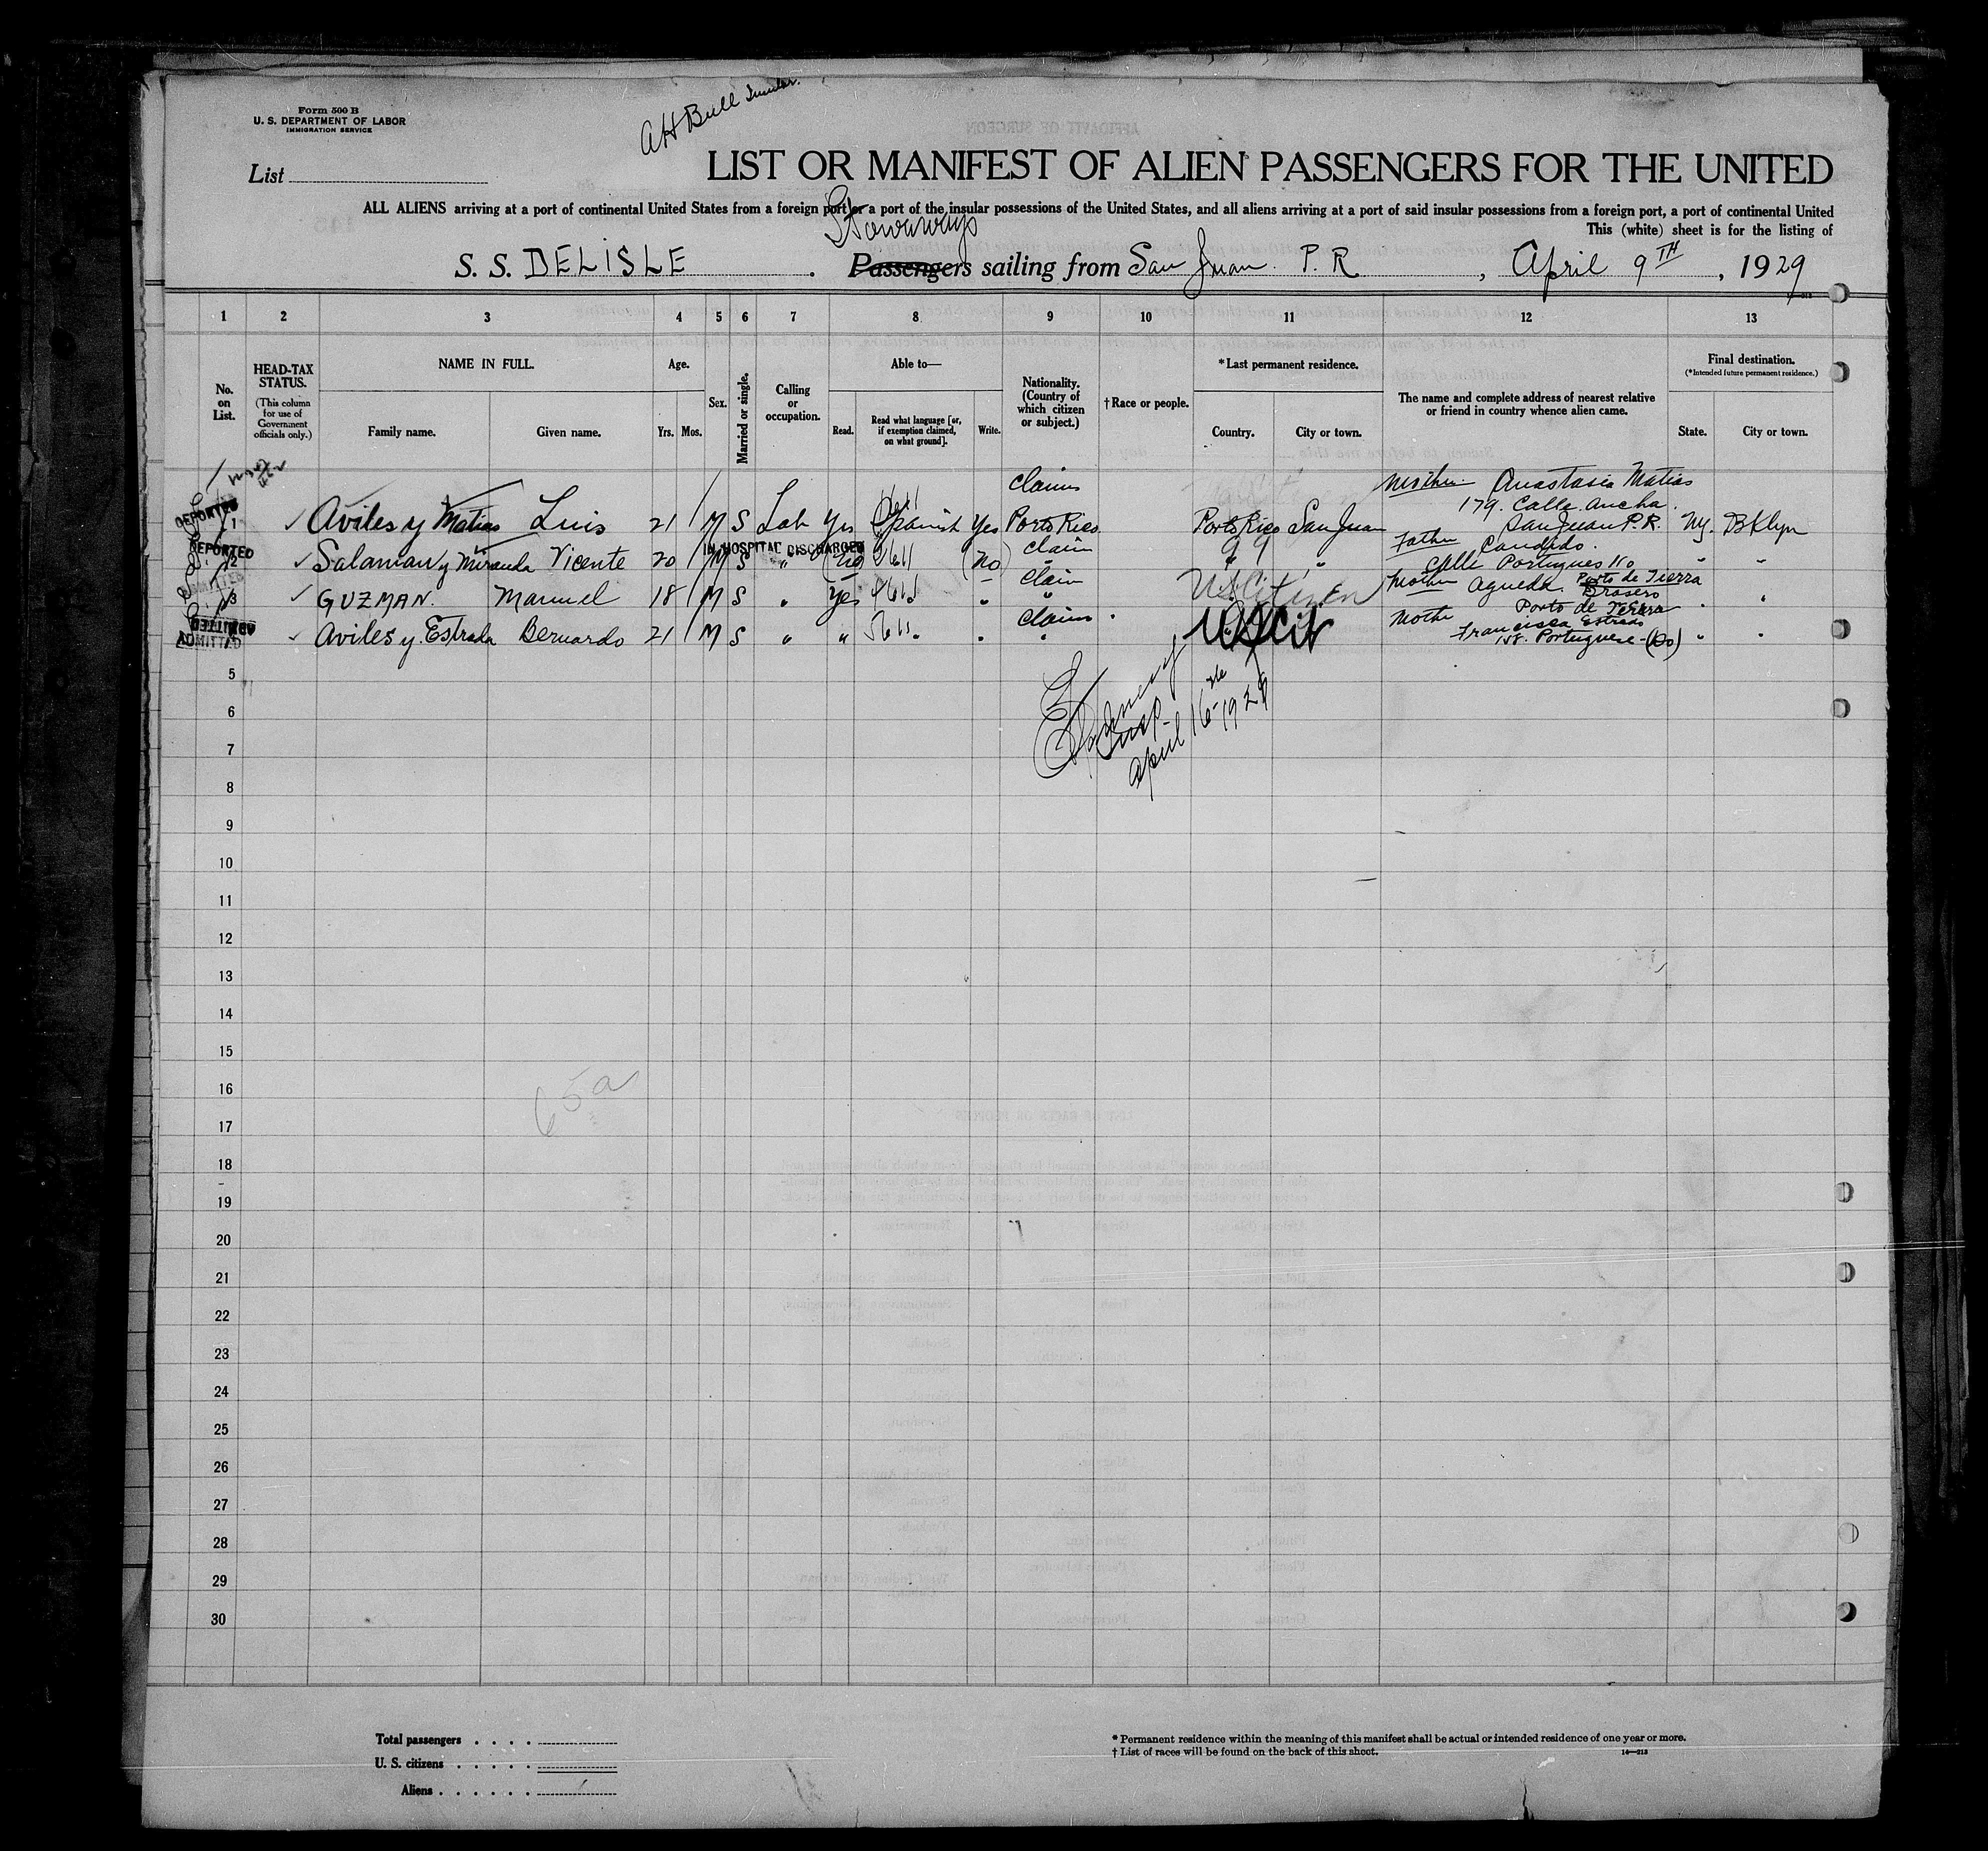 Form 500 B
U. S. DEPARTMENT OF LABOR
IMMIGRATION SERVICE
AH Bull
List
LIST OR MANIFEST OF ALIEN PASSENGERS FOR THE UNITED
ALL ALIENS arriving at a port of continental United States from a foreign port or a port of the insular possessions of the United States, and all aliens arriving at a port of said insular possessions from a foreign port, a port of continental United
This (white) sheet is for the listing of
Stowaways
S. S. DELISLE. Passengers sailing from San Juan P. R., April 9TH, 1929
1 2 3 4 5 6 7 8 9 10 11 12 13
No. on List.
HEAD-TAX STATUS.
(This column for use of Government officials only.)
NAME IN FULL.
Family name. Given name.
Age.
Yrs. Mos.
Sex.
Married or single.
Calling or occupation.
Able to—
Read. Read what language [or, if exemption claimed, on what ground]. Write.
Nationality. (Country of which citizen or subject.)
† Race or people.
* Last permanent residence.
Country. City or town.
The name and complete address of nearest relative or friend in country whence alien came.
Final destination.
(* Intended future permanent residence.)
State. City or town.
claims Mother Anastasia Matias
179. Calle Ancha
DEPORTED 1 ✓ Aviles y Matias Luis 21 M S Lab Yes Spanish Yes Porto Rico Porto Rico San Juan San Juan P.R. Ny. Bklyn
IN HOSPITAL DISCHARGED claim Father Candido.
DEPORTED 2 ✓ Salaman y Miranda Vicente 20 M S " (No) (No) " " Calle Portugues 110 " "
claim Mother Agueda
ADMITTED 3 ✓ GUZMAN. Manuel 18 M S " Yes " " US Citizen " "
claims Mothe Francisca Estrada
ADMITTED ✓ Aviles y Estrada Bernardo 21 M S " " " " " US Cit 158. Portuguese (Do) " "
Insp
April 16 1929
5
6
7
8
9
10
11
12
13
14
15
16
65a
17
18
19
20
21
22
23
24
25
26
27
28
29
30
Total passengers
U. S. citizens
Aliens
* Permanent residence within the meaning of this manifest shall be actual or intended residence of one year or more.
† List of races will be found on the back of this sheet.
14—213